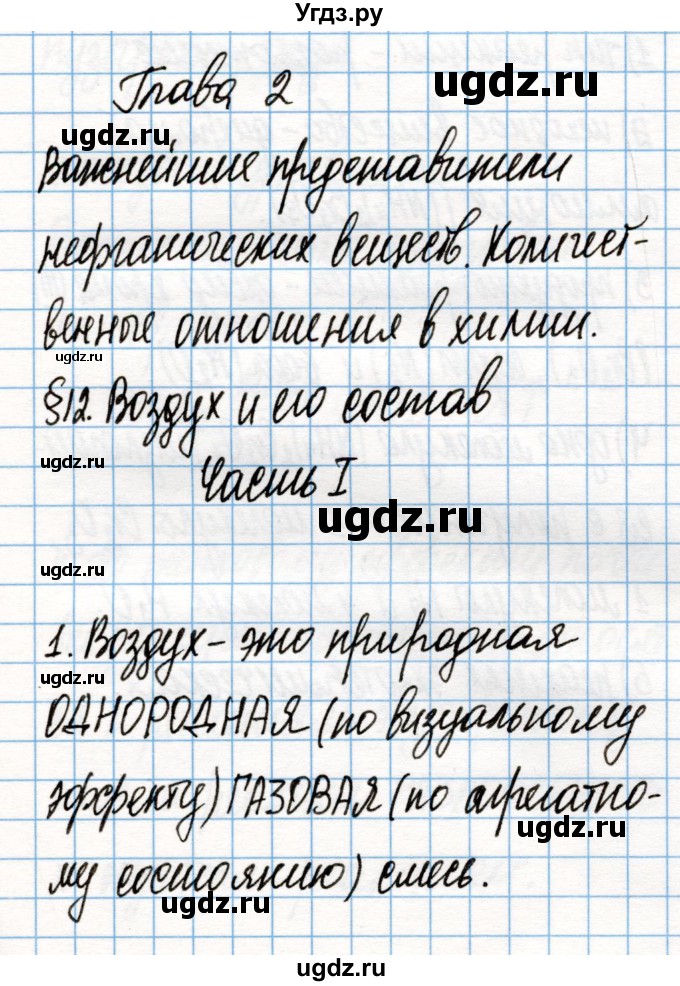 Угдз.ру
Глава 2
ugdz.ru
ugdz.ru
Важнейшие представители
неорганических веществ. Количест-
венные отношения в химии.
ugdz.ru
§12. Воздух и его состав
ugdz.ru
Часть I
ugdz.ru
ugdz.ru
1. Воздух - это природная
ugdz.ru
ОДНОРОДНАЯ (по визуальному
эффекту) ГАЗОВАЯ (по агрегатно-
ugdz.ru
му состоянию) смесь.
ugdz.ru
ugdz.ru